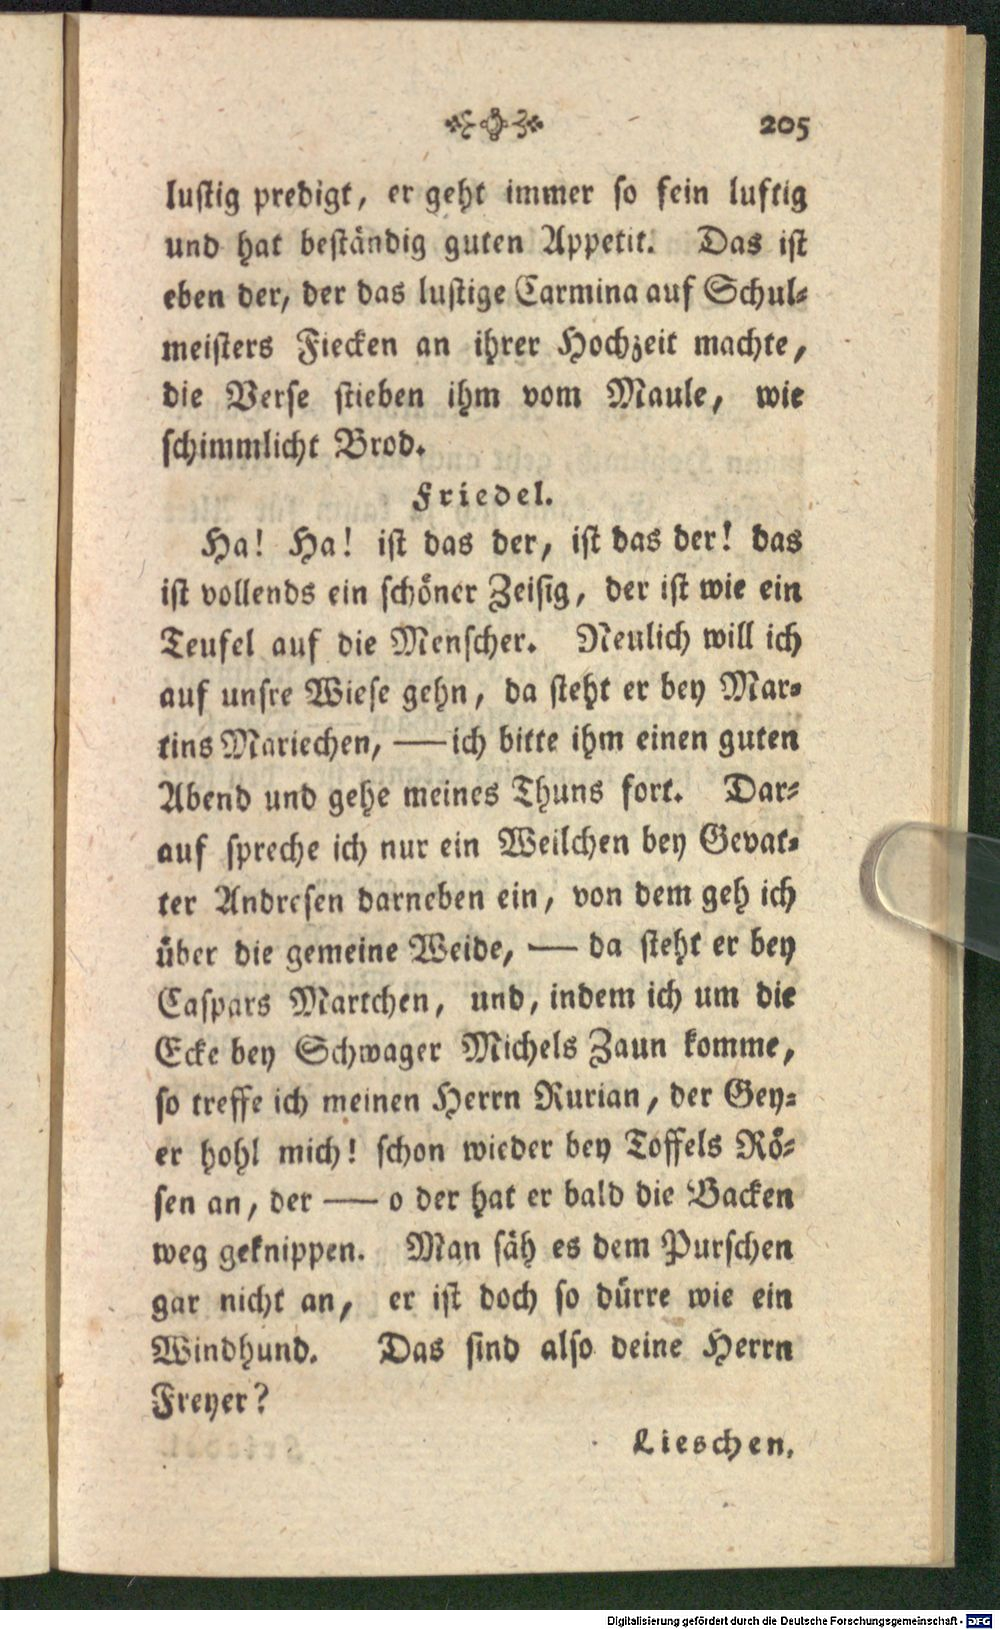 205
lustig predigt, er geht immer so fein luftig
und hat beständig guten Appetit. Das ist
eben der, der das lustige Carmina auf Schul-
meisters Fiecken an ihrer Hochzeit machte,
die Verse stieben ihm vom Maule, wie
schimmlicht Brod.
Friedel.
Ha! Ha! ist das der, ist das der! das
ist vollends ein schöner Zeisig, der ist wie ein
Teufel auf die Menscher. Neulich will ich
auf unsre Wiese gehn, da steht er bey Mar-
tins Mariechen, — ich bitte ihm einen guten
Abend und gehe meines Thuns fort. Dar-
auf spreche ich nur ein Weilchen bey Gevat-
ter Andresen darneben ein, von dem geh ich
über die gemeine Weide, — da steht er bey
Caspars Martchen, und, indem ich um die
Ecke bey Schwager Michels Zaun komme,
so treffe ich meinen Herrn Rurian, der Gey-
er hohl mich! schon wieder bey Toffels Rö-
sen an, der — o der hat er bald die Backen
weg geknippen. Man säh es dem Purschen
gar nicht an, er ist doch so dürre wie ein
Windhund. Das sind also deine Herrn
Freyer?
Lieschen.
Digitalisierung gefördert durch die Deutsche Forschungsgemeinschaft - DFG